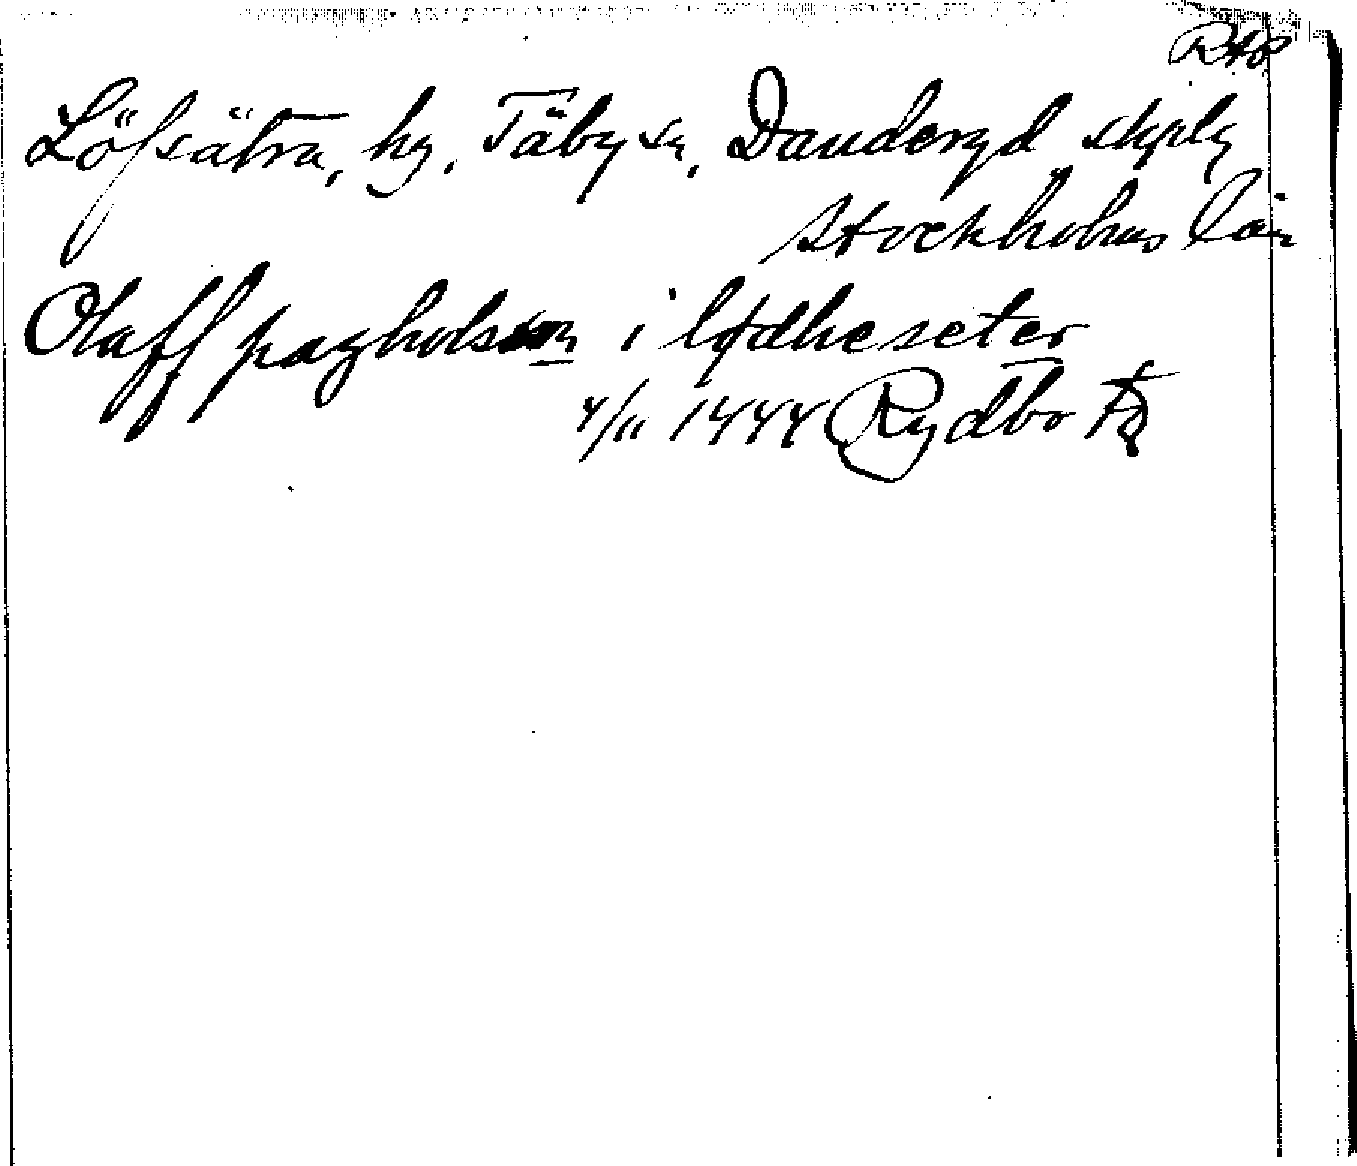 Löfsätra, hg, Täby sn, Danderyd skplg
Stockholms län
Olaff pagholsson i lødheseter
4/11 1444 Rydbo